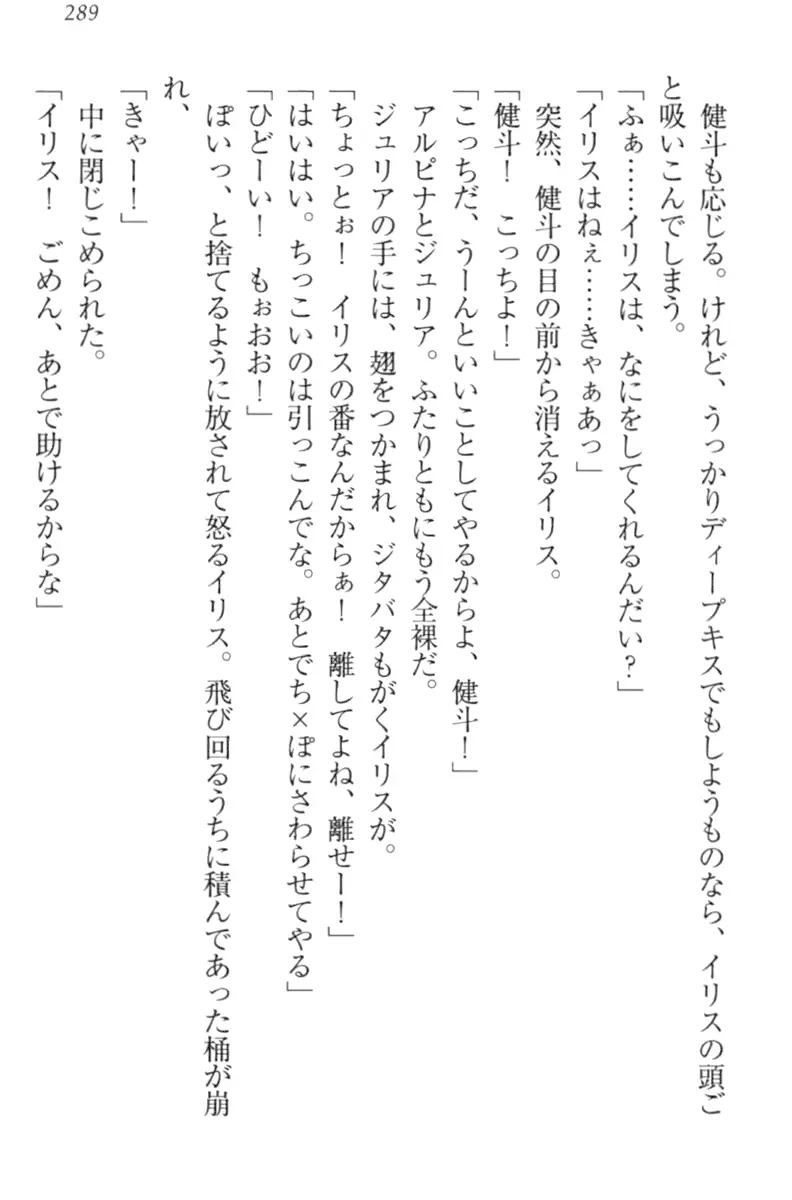 289
　健斗も応じる。けれど、うっかりディープキスでもしようものなら、イリスの頭ご
と吸いこんでしまう。
「ふぁ……イリスは、なにをしてくれるんだい？」
「イリスはねぇ……きゃぁあっ」
　突然、健斗の目の前から消えるイリス。
「健斗！　こっちよ！」
「こっちだ、うーんといいことしてやるからよ、健斗！」
　アルピナとジュリア。ふたりともにもう全裸だ。
　ジュリアの手には、翅をつかまれ、ジタバタもがくイリスが。
「ちょっとぉ！　イリスの番なんだからぁ！　離してよね、離せー！」
「はいはい。ちっこいのは引っこんでな。あとでち×ぽにさわらせてやる」
「ひどーい！　もぉおお！」
　ぽいっ、と捨てるように放されて怒るイリス。飛び回るうちに積んであった桶が崩
れ、
「きゃー！」
　中に閉じこめられた。
「イリス！　ごめん、あとで助けるからな」